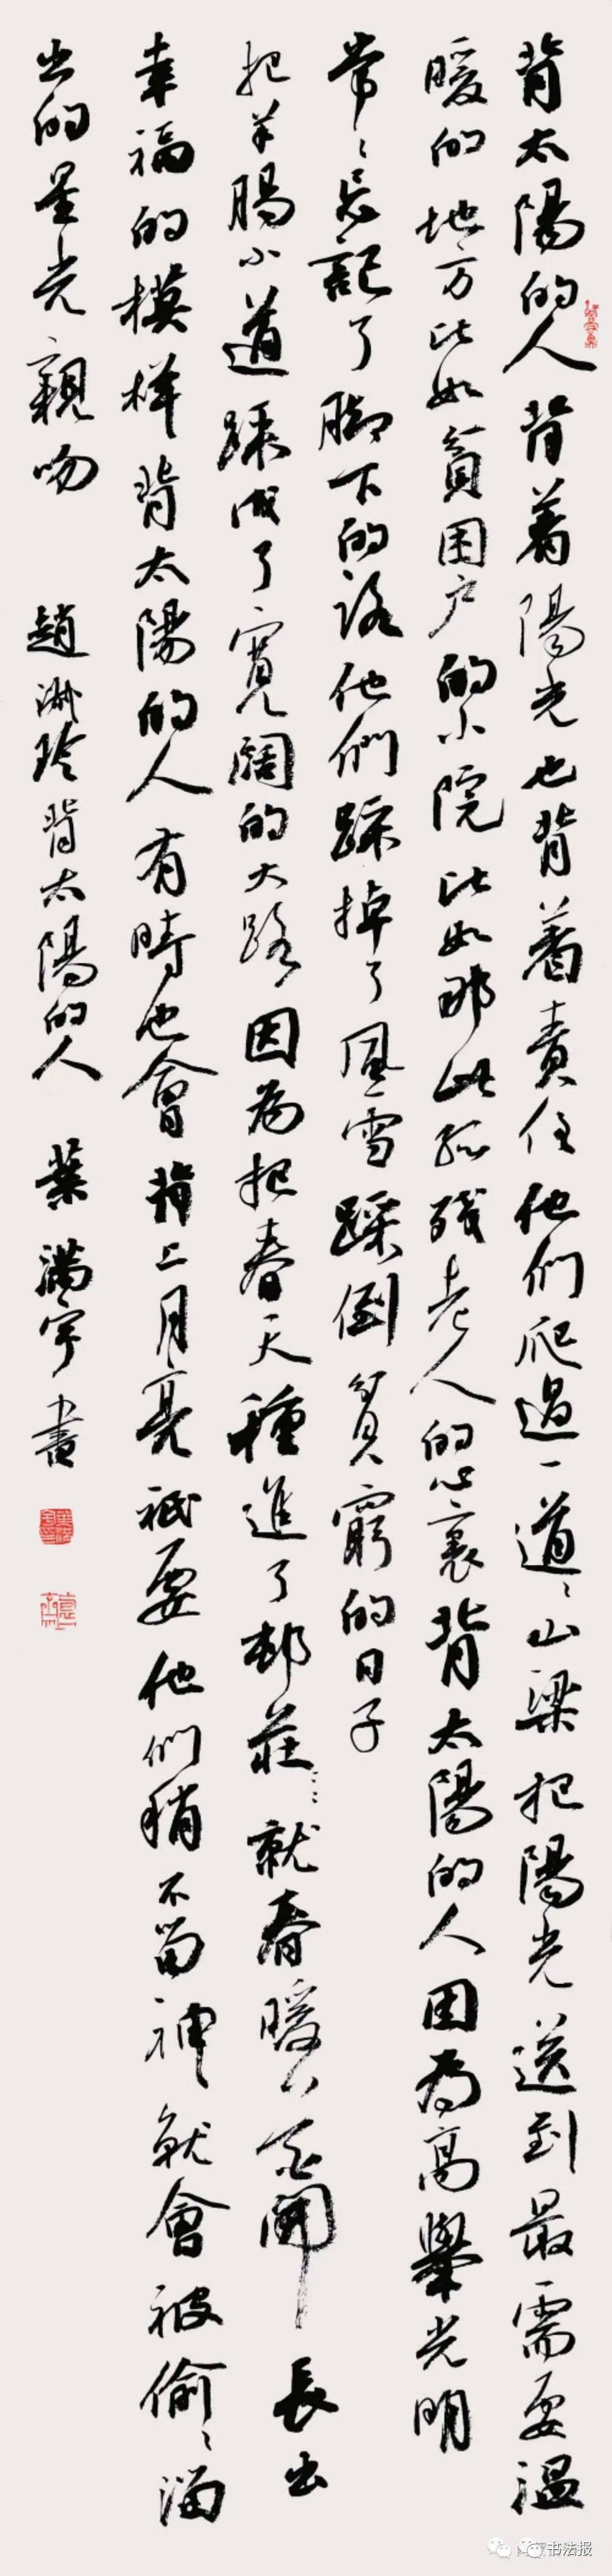 背太陽的人背着陽光也背着責任他们爬過一道道山梁把陽光送到最需要温
暖的地方比如貧困户的小院比如那些孤殘老人的心裏背太陽的人因為高舉光明
常常忘記了脚下的路他們踩掉了風雪踩倒貧窮的日子
把羊腸小道踩成了寬闊的大路因為把春天種進了邨莊就春暖花開長出
幸福的模样背太陽的人有時也會背上月亮祗要他们稍不留神就會被偷偷溜
出的星光親吻
趙淑玲背太陽的人
葉满宇書
书法报